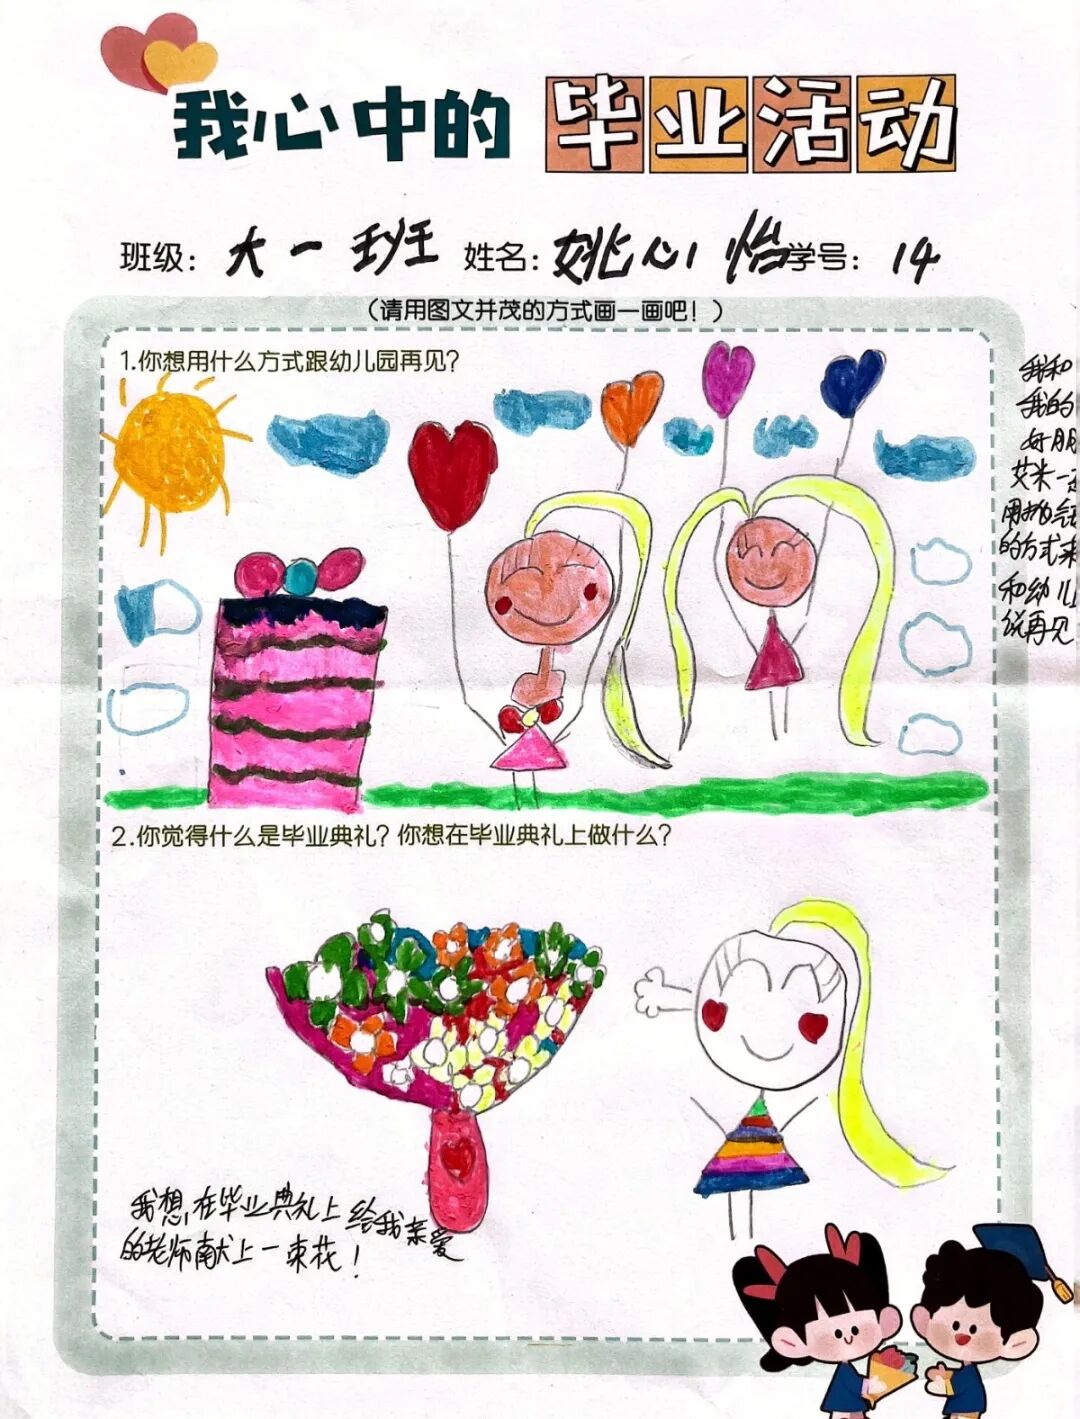 我心中的毕业活动
班级：大一班 姓名：姚心怡 学号：14
（请用图文并茂的方式画一画吧！）
1.你想用什么方式跟幼儿园再见？
我和
我的
好朋
艾米一
用抱
的方式来
和幼儿
说再见
2.你觉得什么是毕业典礼？你想在毕业典礼上做什么？
我想在毕业典礼上给我亲爱
的老师献上一束花！